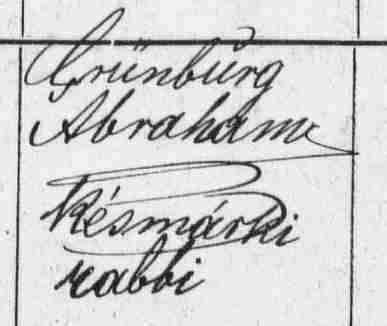 Grünburg
Abraham
késmárki
rabbi